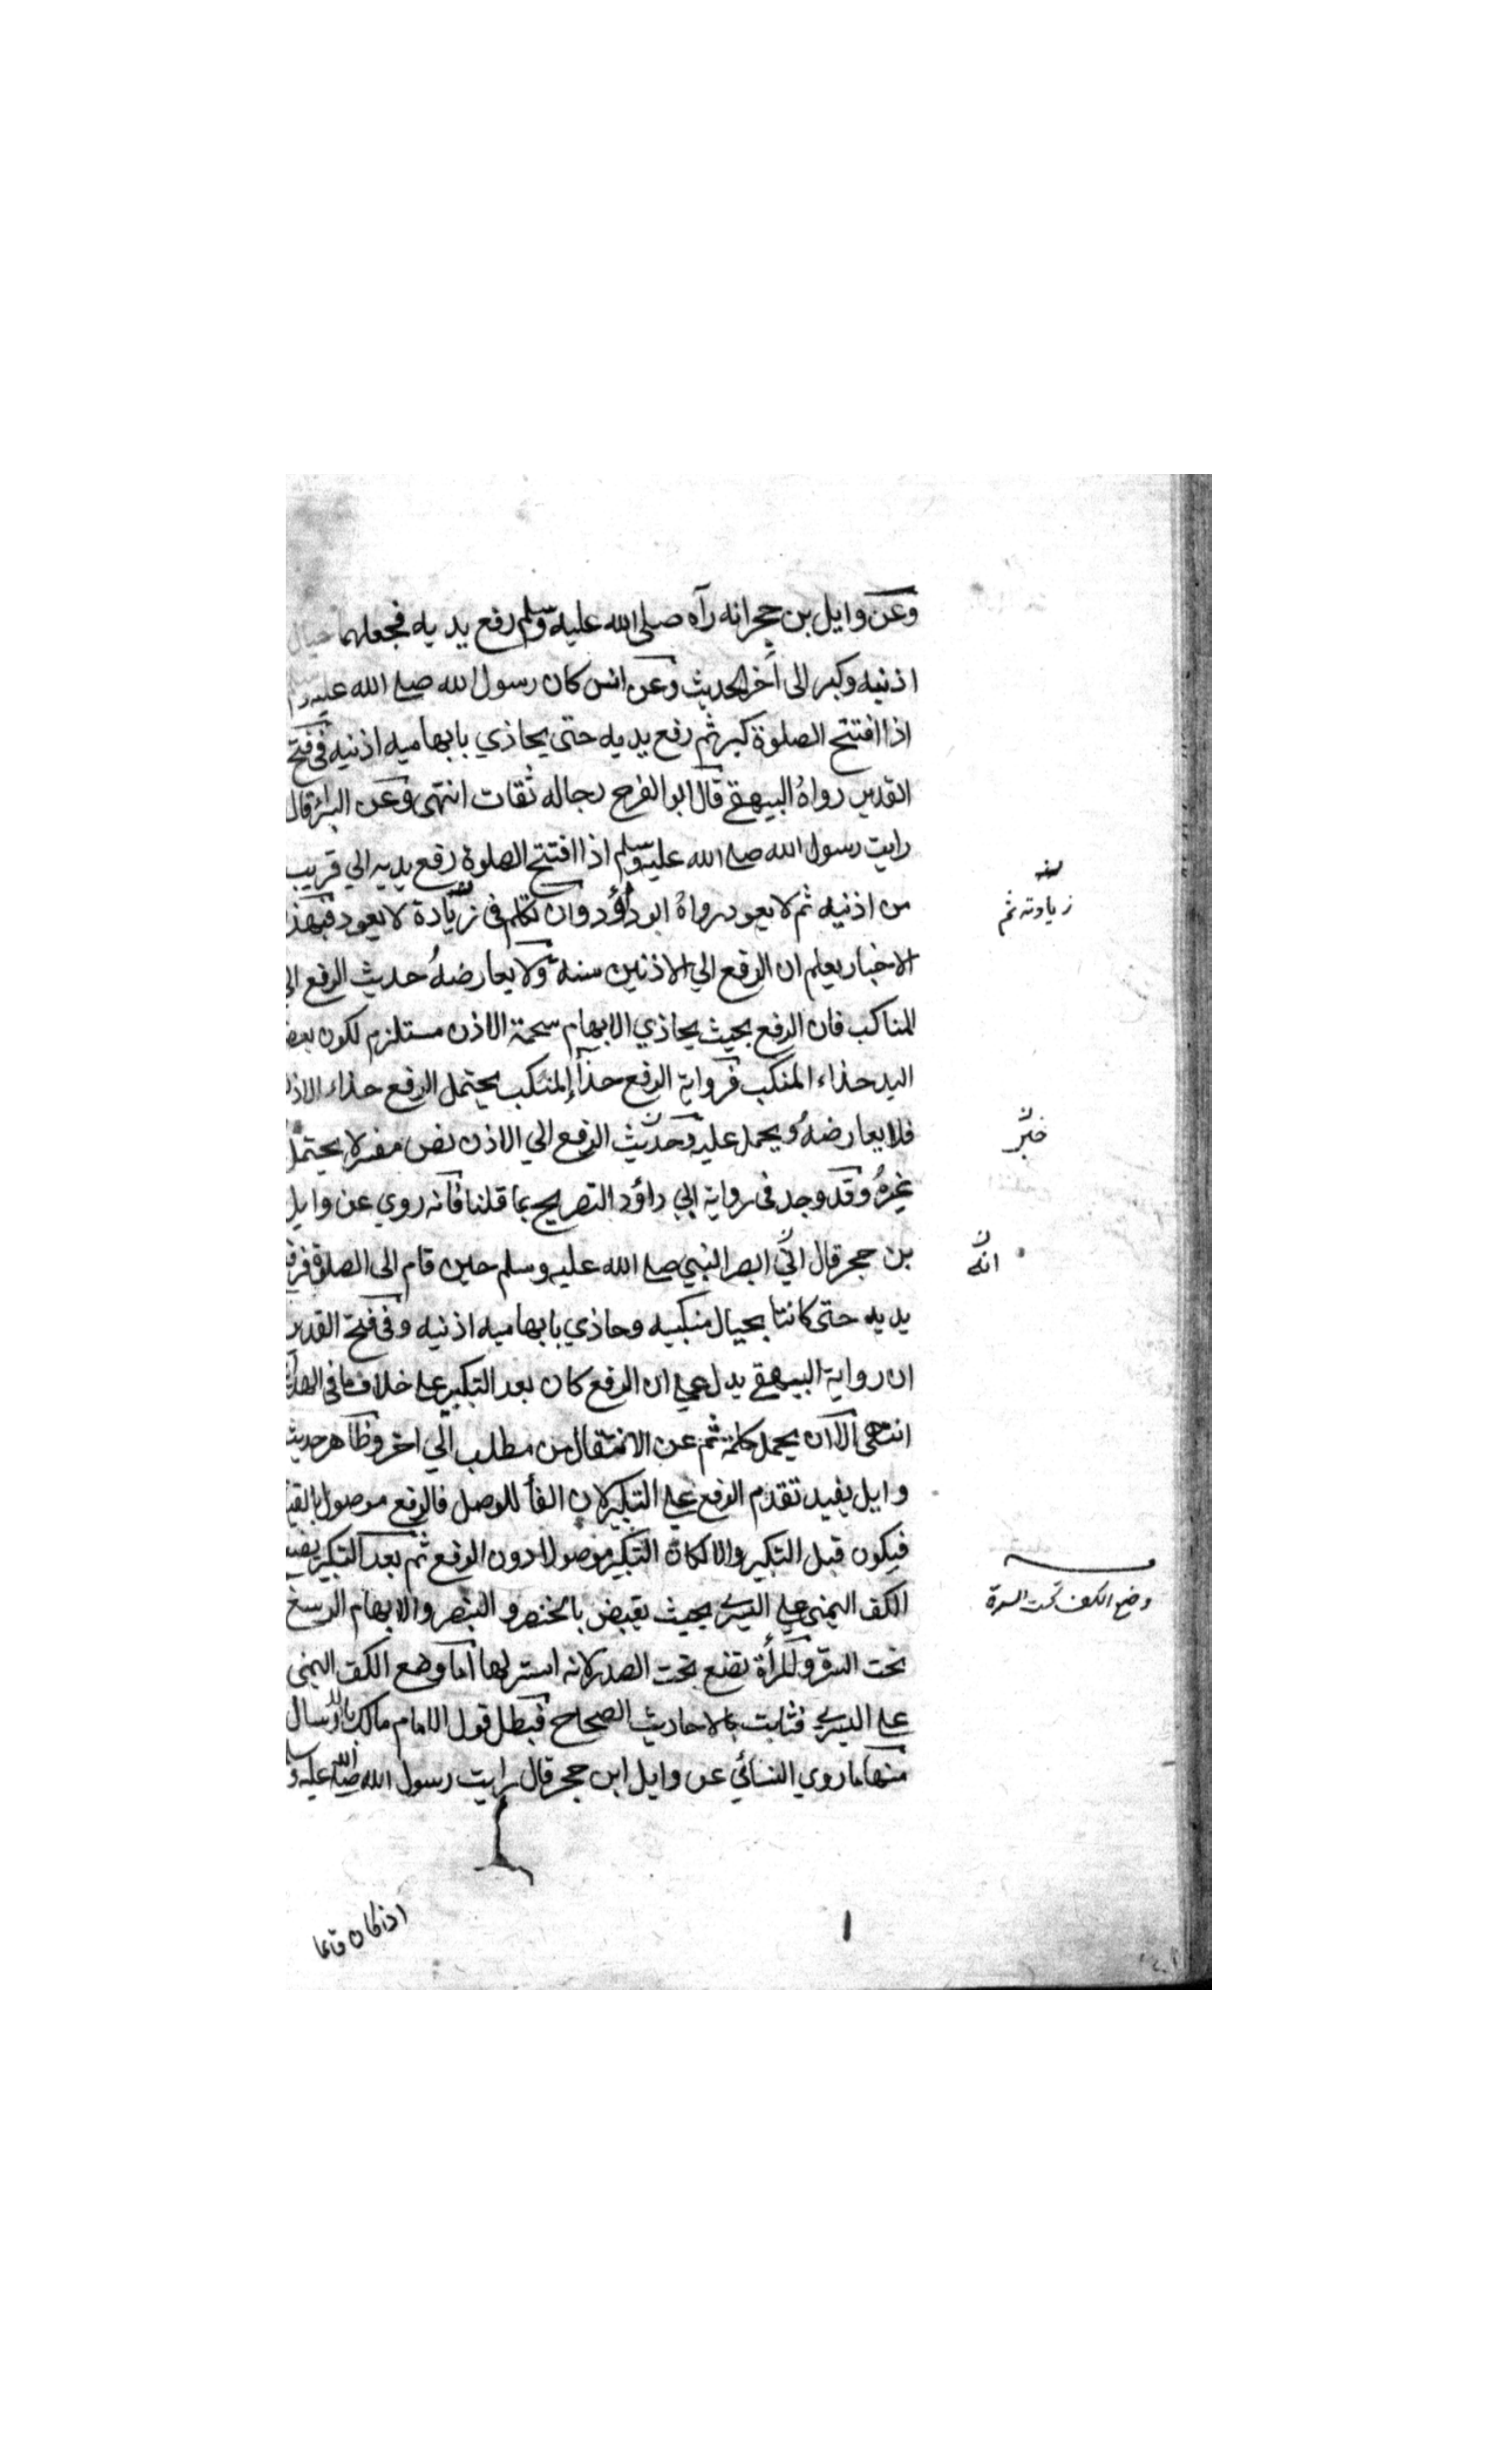 وعن وايل بن حجر انه رآه صلى الله عليه وسلم رفع يديه فجعلهما حيال
اذنيه وكبر الى آخر الحديث وعن انس كان رسول الله صلى الله عليه وسلم
اذا افتتح الصلوة كبر ثم رفع يديه حتى يحاذي بابهاميه اذنيه في فتح
القدير رواه البيهقي قال ابو الفرح رجاله ثقات انتهى وعن البراء قال
رايت رسول الله صلى الله عليه وسلم اذا افتتح الصلوة رفع يديه الي قريب
من اذنيه ثم لا يعود رواه ابو داؤد وان تكلم في زيادة لا يعود فبهذ
زيادته ثم
الاخبار يعلم ان الرفع الي الاذنين سنة ولا يعارضه حديث الرفع الي
المناكب فان الرفع بحيث يحاذي الابهام سحمة الاذن مستلزم لكون بعض
اليد حذاء المنكب فرواية الرفع حذاء المنكب يحتمل الرفع حذاء الاذن
فلا يعارضه ويحمل عليه وحديث الرفع الي الاذن نص مفسر لا يحتمل
خبر
غيره وقد وجد في رواية ابي داؤد التصريح بما قلنا فانه روي عن وايل
بن حجر قال اني ابصر النبي صلى الله عليه وسلم حين قام الى الصلوة فرفع
انه
يديه حتى كانتا بحيال منكبيه وحاذي بابهاميه اذنيه وفي فتح القدير
ان رواية البيهقي يدل على ان الرفع كان بعد التكبير على خلاف ما في الهداية
انتهى الا ان يحمل كلمة ثم عن الانتقال من مطلب الي اخر وظاهر حديث
وايل يفيد تقدم الرفع على التكبير لان الفأ للوصل فالرفع موصول بالقيا
فيكون قبل التكبير والا لكان التكبير موصولا دون الرفع ثم بعد التكبير يضع
الكف اليمني على اليسرى بحيث يقبض بالخنصر و البنصر والابهام الرسغ
وضع الكف تحت السرة
تحت السرة والمرأة تضع تحت الصدر لانه استر لها اما وضع الكف اليمنى
على اليسرى فثابت بالاحاديث الصحاح فبطل قول الامام مالك بالارسال
منها ما روي النسائي عن وايل ابن حجر قال رايت رسول الله صلى الله عليه و
اذا كان قائما